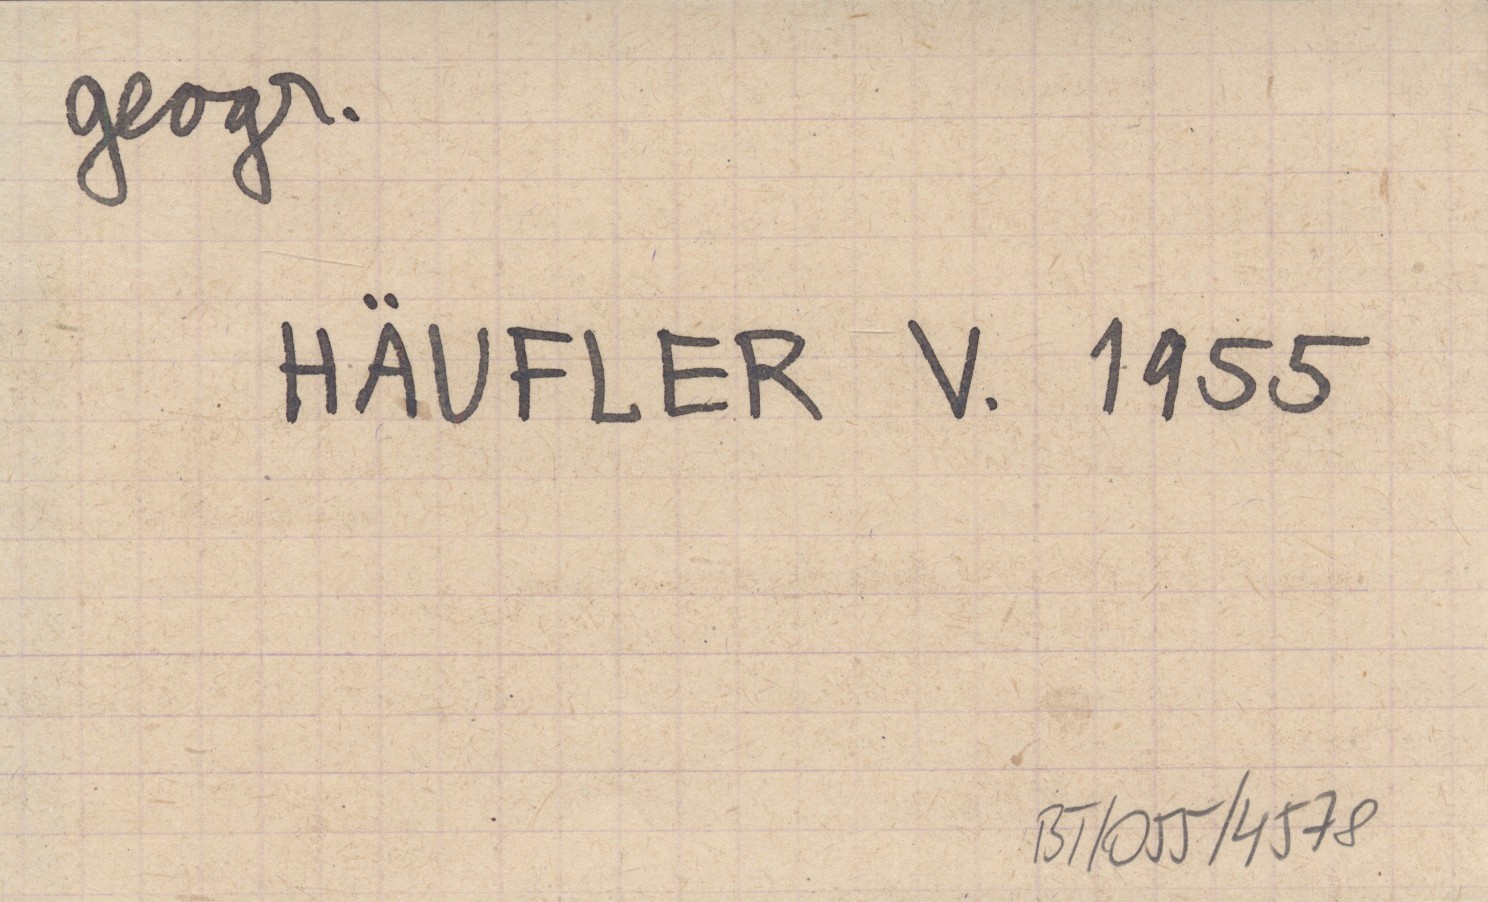 geogr.
HÄUFLER V. 1955
BT/055/4578